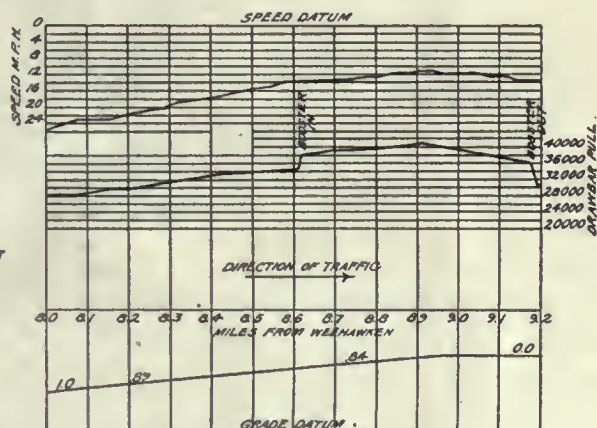 SPEED DATUM
SPEED M.P.H.
0
4
8
12
16
20
24
BOOSTER IN
BOOSTER OUT
40000
36000
32000
28000
24000
20000
DRAWBAR PULL.
DIRECTION OF TRAFFIC
8.0 8.1 8.2 8.3 8.4 8.5 8.6 8.7 8.8 8.9 9.0 9.1 9.2
MILES FROM WEEHAWKEN
1.0 .89 .84 0.0
GRADE DATUM.